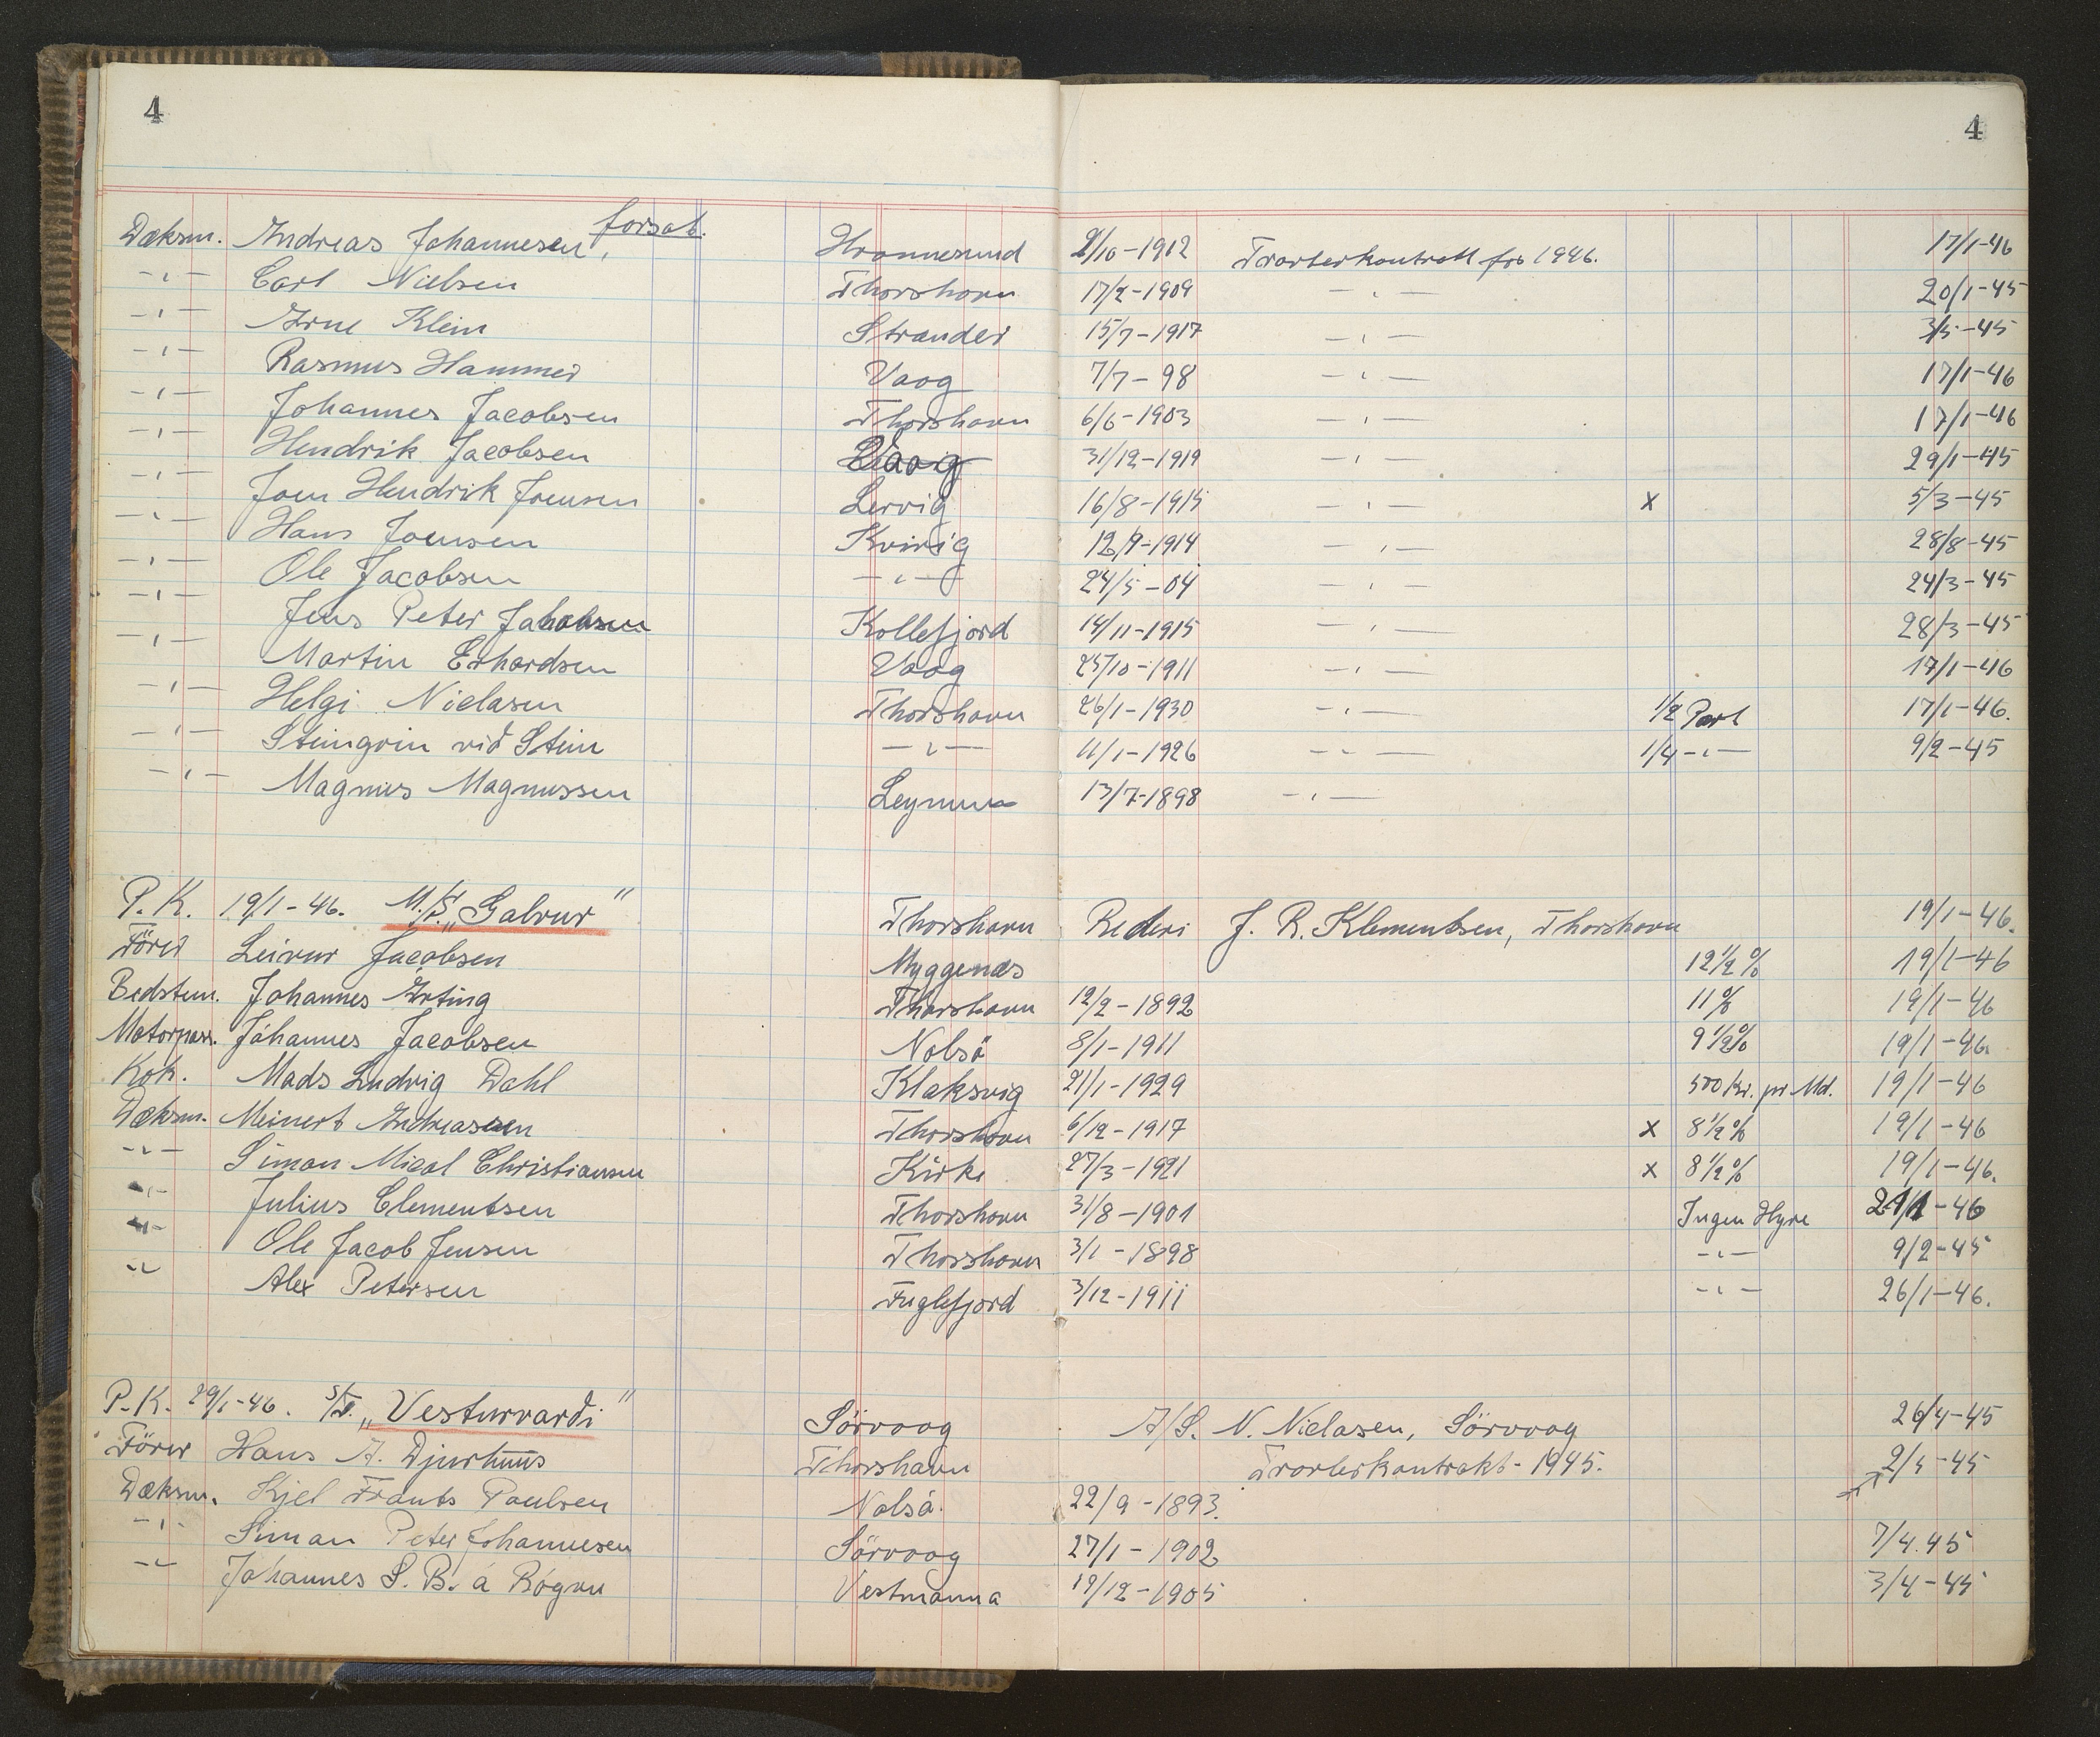 4 4
forsat.
Dæksm. Andreas Johannesen, Hvannesund 2/10-1912 Trawlerkontrakt for 1946. 17/1-46
-"- Carl Nielsen Thorshavn 17/2-1909 -"- 20/1-45
-"- Arne Klein Strander 15/7-1917 -"- 3/5-45
-"- Rasmus Hammer Vaag 7/7-98 -"- 17/1-46
-"- Johannes Jacobsen Thorshavn 6/6-1903 -"- 17/1-46
-"- Hendrik Jacobsen Vaag 31/12-1919 -"- 29/1-45
-"- Joen Hendrik Joensen Lervig 16/8-1915 -"- x 5/3-45
-"- Hans Joensen Kvivig 12/9-1914 -"- 28/8-45
-"- Ole Jacobsen -"- 24/5-04 -"- 24/3-45
-"- Jens Peter Jacobsen Kollefjord 14/11-1915 -"- 28/3-45
-"- Martin Erhardsen Vaag 25/10-1911 -"- 17/1-46
-"- Helgi Niclasen Thorshavn 26/1-1930 -"- 1/2 Part 17/1-46.
-"- Steingrim við Stein -"- 11/1-1926 -"- 1/4 -"- 9/2-45
-"- Magnus Magnussen Leynum 13/7-1898 -"-
P.K. 19/1-46. M/S. „Galvur" Thorshavn Rederi J. R. Klementsen, Thorshavn 19/1-46.
Förer Leivur Jacobsen Myggenæs 12 1/2 % 19/1-46
Bedstem. Johannes Arting Thorshavn 12/2-1892 11 % 19/1-46
Motorpass. Jóhannes Jacobsen Nolsö 8/1-1911 9 1/2 % 19/1-46
Kok. Mads Ludvig Dahl Klaksvig 21/1-1929 500 Kr. pr Md. 19/1-46
Dæksm. Meinert Andreasen Thorshavn 6/12-1917 x 8 1/2 % 19/1-46
-"- Simon Mical Christiansen Kirke 27/3-1921 x 8 1/2 % 19/1-46.
-"- Julius Clementsen Thorshavn 31/8-1901 Ingen Hyre 21/1-46
-"- Ole Jacob Jensen Thorshavn 3/1-1898 -"- 9/2-45
-"- Alex Petersen Fuglefjord 3/12-1911 -"- 26/1-46.
P.K. 29/1-46. S/T. „Vesturvarði" Sörvaag A/S. N. Niclasen, Sörvaag 26/4-45
Förer Hans A. Djurhuus Thorshavn Trawlerkontrakt-1945. 2/5-45
Dæksm. Kjel Frants Poulsen Nolsö. 22/9-1893.
-"- Simon Peter Johannesen Sörvaag 27/1-1902 7/4.45
-"- Jóhannes S. B. á Rógvu Vestmanna 19/12-1905 3/4-45